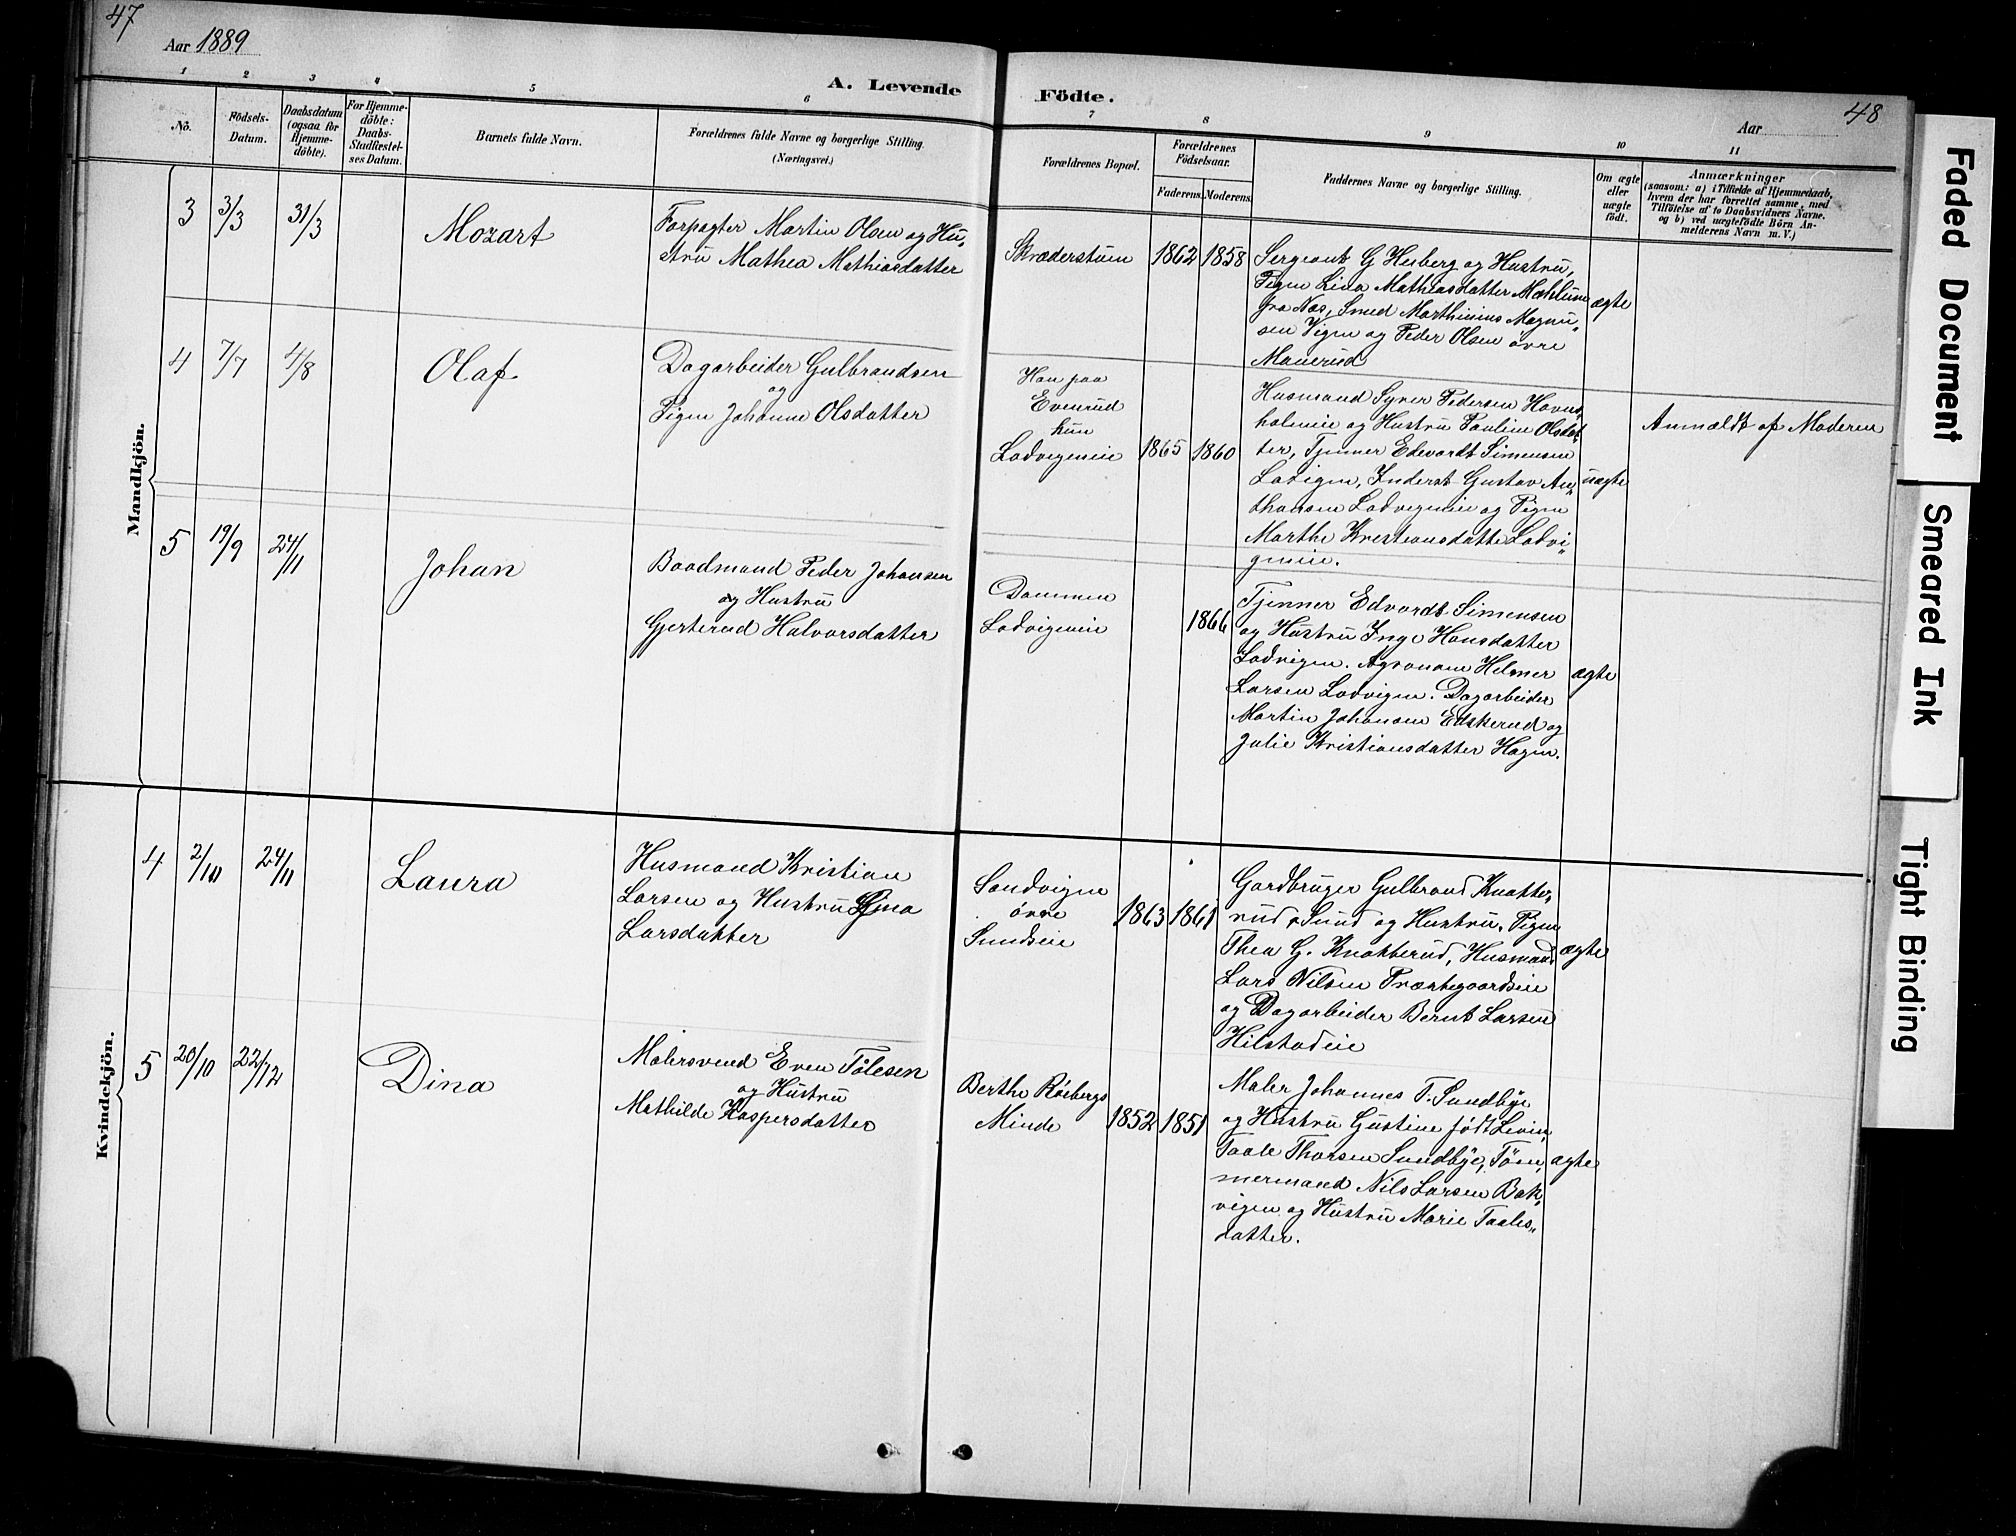 47
Aar 1889
A. Levende Födte.
Aar
48
1 2 3 4 5 6 7 8 9 10 11
No.
Födsels-
Datum.
Daabsdatum
(ogsaa for
Hjemme-
döbte).
For Hjemme-
döbte:
Daabs-
Stadfæstel-
ses Datum.
Barnets fulde Navn.
Forældrenes fulde Navne og borgerlige Stilling.
(Næringsvei.)
Forældrenes Bopæl.
Forældrenes
Födselsaar.
Faderens.
Moderens.
Faddernes Navne og borgerlige Stilling.
Om ægte
eller
uægte
födt.
Anmærkninger
(saasom: a) i Tilfælde af Hjemmedaab,
hvem der har forrettet samme, med
Tilföielse af to Daabsvidners Navne.
og b) ved uægtefödte Börn An-
melderens Navn m. V.)
Mandkjön.
3
3/3
31/3
Mozart
Forpagter Martin Olsen og Hu-
stru Mathea Mathiasdatter
Skræderstuen
1862
1858
Sergeant G Husberg og Hustru,
Pigen Lina Mathiasdatter Mæhlum
fra Næs, Smed Marthinius Magnu-
sen Vigen og Peder Olsen øvre
Manerud
ægte
4
7/7
4/8
Olaf
Dagarbeider Gulbrandsen
og
Pigen Johanne Olsdatter
Han paa
Evenrud
hun
Ladvigeneie
1865
1860
Husmand Syver Pedersen Hovus-
holmeie og Hustru Pauline Olsdat-
ter, Tjenner Edvardt Simensen
Ladvigen, Inderst Gustav An-
thonsen Ladvigeneie og Pigen
Marthe Kristiansdatter Ladvi-
geneie.
uægte
Anmældt af Moderen
5
19/9
24/11
Johan
Baadmand Peder Johansen
og Hustru
Gjerterud Halvorsdatter
Dammen
Ladvigeneie
1866
Tjenner Edvardt Simensen
og Hustru Inge Hansdatter
Ladvigen. Agronom Helmer
Larsen Ladvigen. Dagarbeider
Martin Johansen Edskerud og
Julie Kristiansdatter Hagen.
ægte
Kvindekjön.
4
2/10
24/11
Laura
Husmand Kristian
Larsen og Hustru Lina
Larsdatter
Sandvigen
øvre
Sundseie
1863
1861
Gardbruger Gulbrand Knatte-
rud, Sund og Hustru, Pigen
Thea G. Knatterud, Husmand
Lars Nilsen Præstegaardseie
og Dagarbeider Bernt Larsen
Hilstadeie
ægte
5
20/10
22/12
Dina
Malersvend Even Tolesen
og Hustru
Mathilde Kaspersdatter
Berthe Röebergs
Minde
1852
1851
Maler Johannes T. Sundbye
og Hustru Gustine født Levin,
Taale Thorsen Sundbye, Töm-
mermand Nils Larsen Bak-
vigen og Hustru Marie Taales-
datter.
ægte
Faded Document
Smeared Ink
Tight Binding